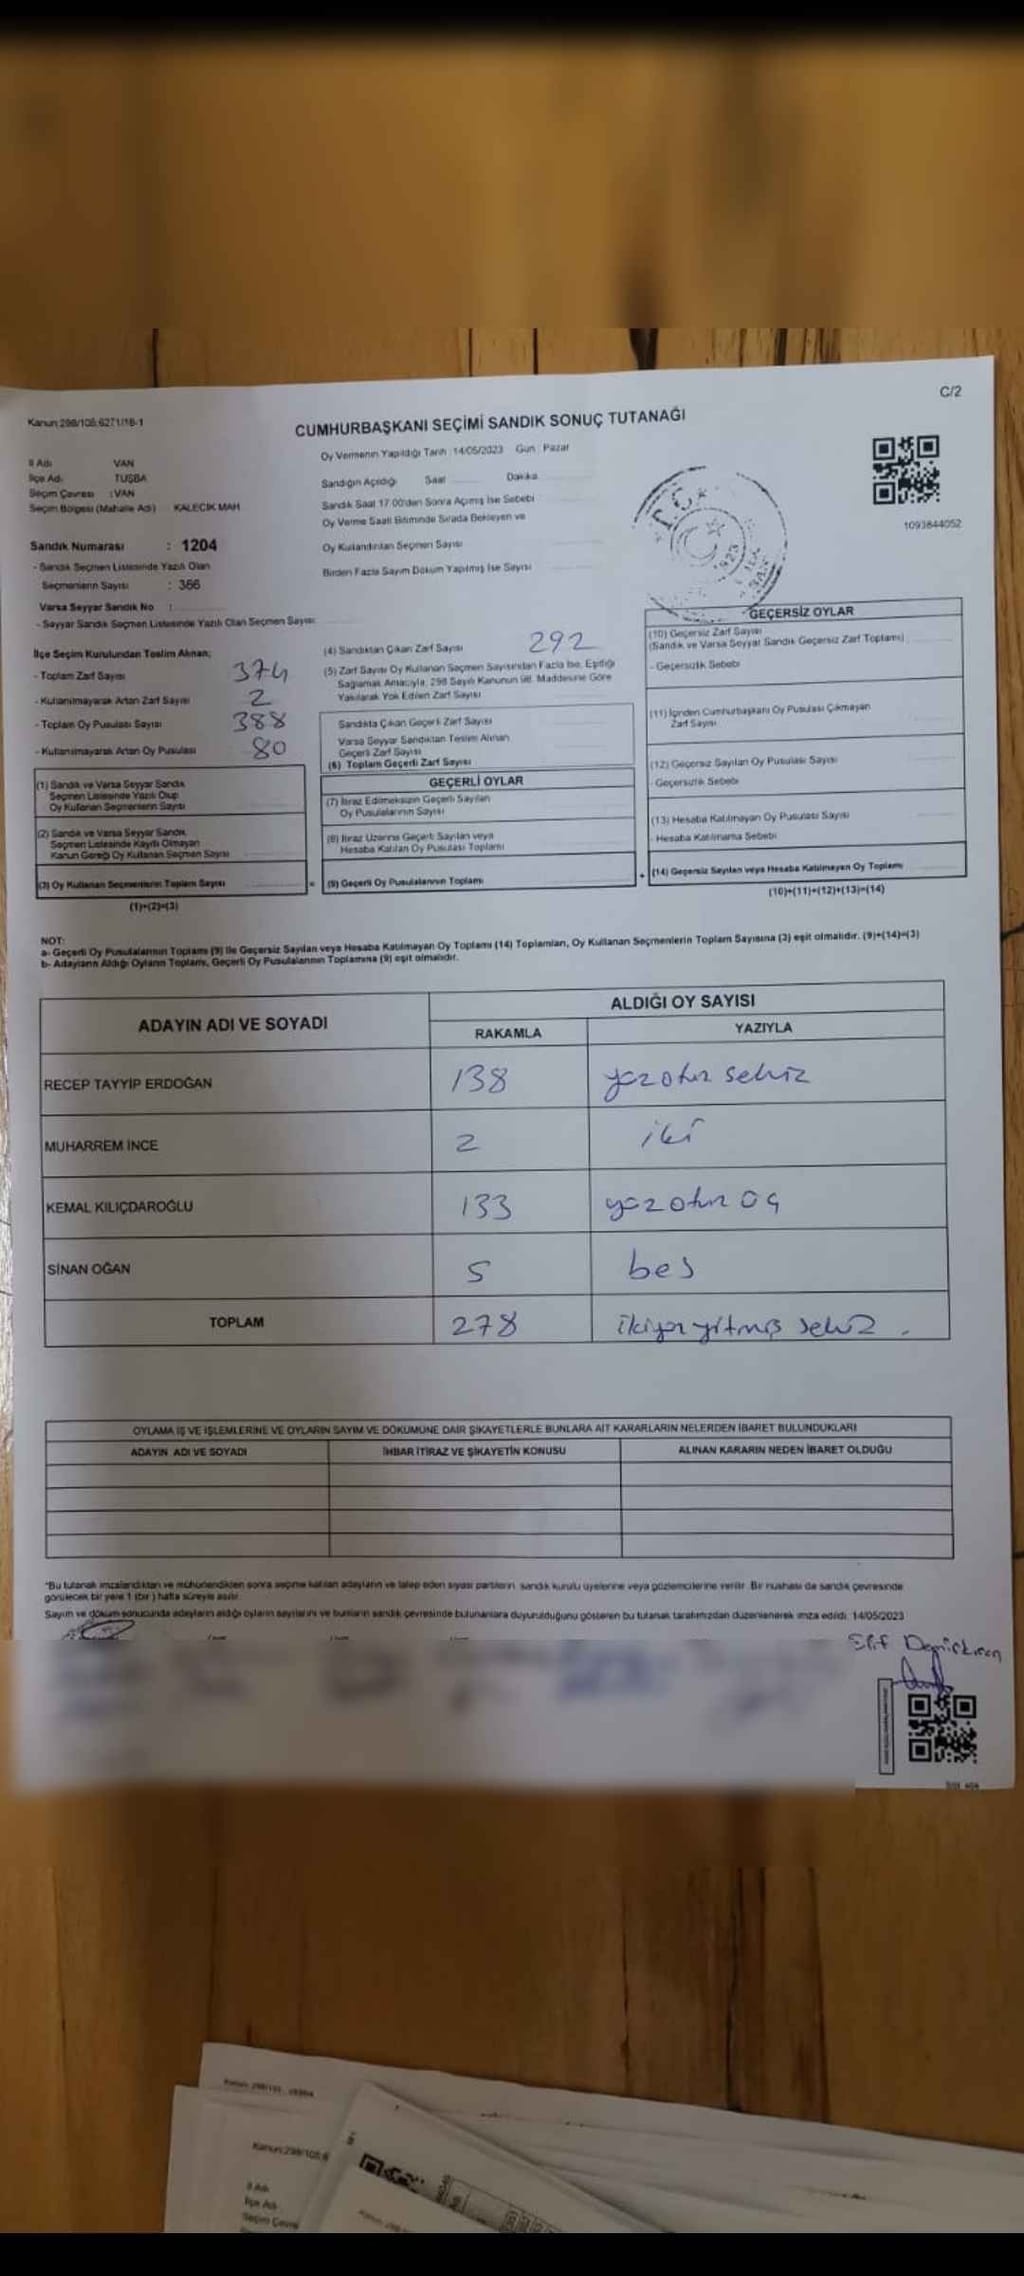 C/2
Kanun:298/105;6271/18-1
CUMHURBAŞKANI SEÇİMİ SANDIK SONUÇ TUTANAĞI
Oy Vermenin Yapıldığı Tarih :14/05/2023 Gün : Pazar
İl Adı VAN
İlçe Adı TUŞBA
Seçim Çevresi : VAN
Seçim Bölgesi (Mahalle Adı) KALECİK MAH
Sandık Numarası : 1204
- Sandık Seçmen Listesinde Yazılı Olan
Seçmenlerin Sayısı : 366
Varsa Seyyar Sandık No :
- Seyyar Sandık Seçmen Listesinde Yazılı Olan Seçmen Sayısı
Sandığın Açıldığı Saat Dakika
Sandık Saat 17.00'den Sonra Açılmış İse Sebebi
Oy Verme Saati Bitiminde Sırada Bekleyen ve
Oy Kullandırılan Seçmen Sayısı
Birden Fazla Sayım Döküm Yapılmış İse Sayısı
T.C.
1923
1093844052
İlçe Seçim Kurulundan Teslim Alınan;
- Toplam Zarf Sayısı 374
- Kullanılmayarak Artan Zarf Sayısı 2
- Toplam Oy Pusulası Sayısı 388
- Kullanılmayarak Artan Oy Pusulası 80
(1) Sandık ve Varsa Seyyar Sandık
Seçmen Listesinde Yazılı Olup
Oy Kullanan Seçmenlerin Sayısı
(2) Sandık ve Varsa Seyyar Sandık
Seçmen Listesinde Kayıtlı Olmayan
Kanun Gereği Oy Kullanan Seçmen Sayısı
(3) Oy Kullanan Seçmenlerin Toplam Sayısı
(1)+(2)=(3)
(4) Sandıktan Çıkan Zarf Sayısı 292
(5) Zarf Sayısı Oy Kullanan Seçmen Sayısından Fazla İse, Eşitliği
Sağlamak Amacıyla, 298 Sayılı Kanunun 98. Maddesine Göre
Yakılarak Yok Edilen Zarf Sayısı
Sandıkta Çıkan Geçerli Zarf Sayısı
Varsa Seyyar Sandıktan Teslim Alınan
Geçerli Zarf Sayısı
(6) Toplam Geçerli Zarf Sayısı
GEÇERLİ OYLAR
(7) İtiraz Edilmeksizin Geçerli Sayılan
Oy Pusulalarının Sayısı
(8) İtiraz Üzerine Geçerli Sayılan veya
Hesaba Katılan Oy Pusulası Toplamı
= (9) Geçerli Oy Pusulalarının Toplamı
GEÇERSİZ OYLAR
(10) Geçersiz Zarf Sayısı
(Sandık ve Varsa Seyyar Sandık Geçersiz Zarf Toplamı)
- Geçersizlik Sebebi
(11) İçinden Cumhurbaşkanı Oy Pusulası Çıkmayan
Zarf Sayısı
(12) Geçersiz Sayılan Oy Pusulası Sayısı
- Geçersizlik Sebebi
(13) Hesaba Katılmayan Oy Pusulası Sayısı
- Hesaba Katılmama Sebebi
+ (14) Geçersiz Sayılan veya Hesaba Katılmayan Oy Toplamı
(10)+(11)+(12)+(13)=(14)
NOT:
a- Geçerli Oy Pusulalarının Toplamı (9) ile Geçersiz Sayılan veya Hesaba Katılmayan Oy Toplamı (14) Toplamları, Oy Kullanan Seçmenlerin Toplam Sayısına (3) eşit olmalıdır. (9)+(14)=(3)
b- Adayların Aldığı Oyların Toplamı, Geçerli Oy Pusulalarının Toplamına (9) eşit olmalıdır.
ADAYIN ADI VE SOYADI ALDIĞI OY SAYISI
RAKAMLA YAZIYLA
RECEP TAYYİP ERDOĞAN 138 yüzotuz sekiz
MUHARREM İNCE 2 iki
KEMAL KILIÇDAROĞLU 133 yüzotuz üç
SİNAN OĞAN 5 beş
TOPLAM 278 ikiyüzyitmiş sekiz
OYLAMA İŞ VE İŞLEMLERİNE VE OYLARIN SAYIM VE DÖKÜMÜNE DAİR ŞİKAYETLERLE BUNLARA AİT KARARLARIN NELERDEN İBARET BULUNDUKLARI
ADAYIN ADI VE SOYADI İHBAR İTİRAZ VE ŞİKAYETİN KONUSU ALINAN KARARIN NEDEN İBARET OLDUĞU
*Bu tutanak imzalandıktan ve mühürlendikten sonra seçime katılan adayların ve talep eden siyasi partilerin sandık kurulu üyelerine veya gözlemcilerine verilir. Bir nüshası da sandık çevresinde
görülecek bir yere 1 (bir) hafta süreyle asılır.
Sayım ve döküm sonucunda adayların aldığı oyların sayılarını ve bunların sandık çevresinde bulunanlara duyurulduğunu gösteren bu tutanak tarafımızdan düzenlenerek imza edildi. 14/05/2023
Elif Demirkıran
Kanun:298/105;6
İl Adı
İlçe Adı
Seçim Çevre